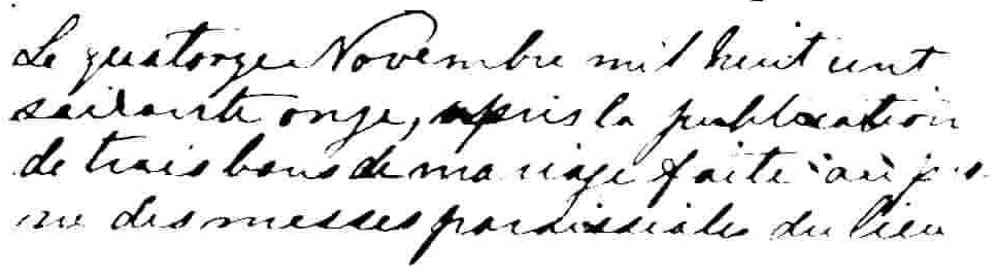 Le quatorze Novembre mil huit cent
soixante onze, après la publication
de trois bans de mariage faite au prô
ne des messes paroissiales du lieu